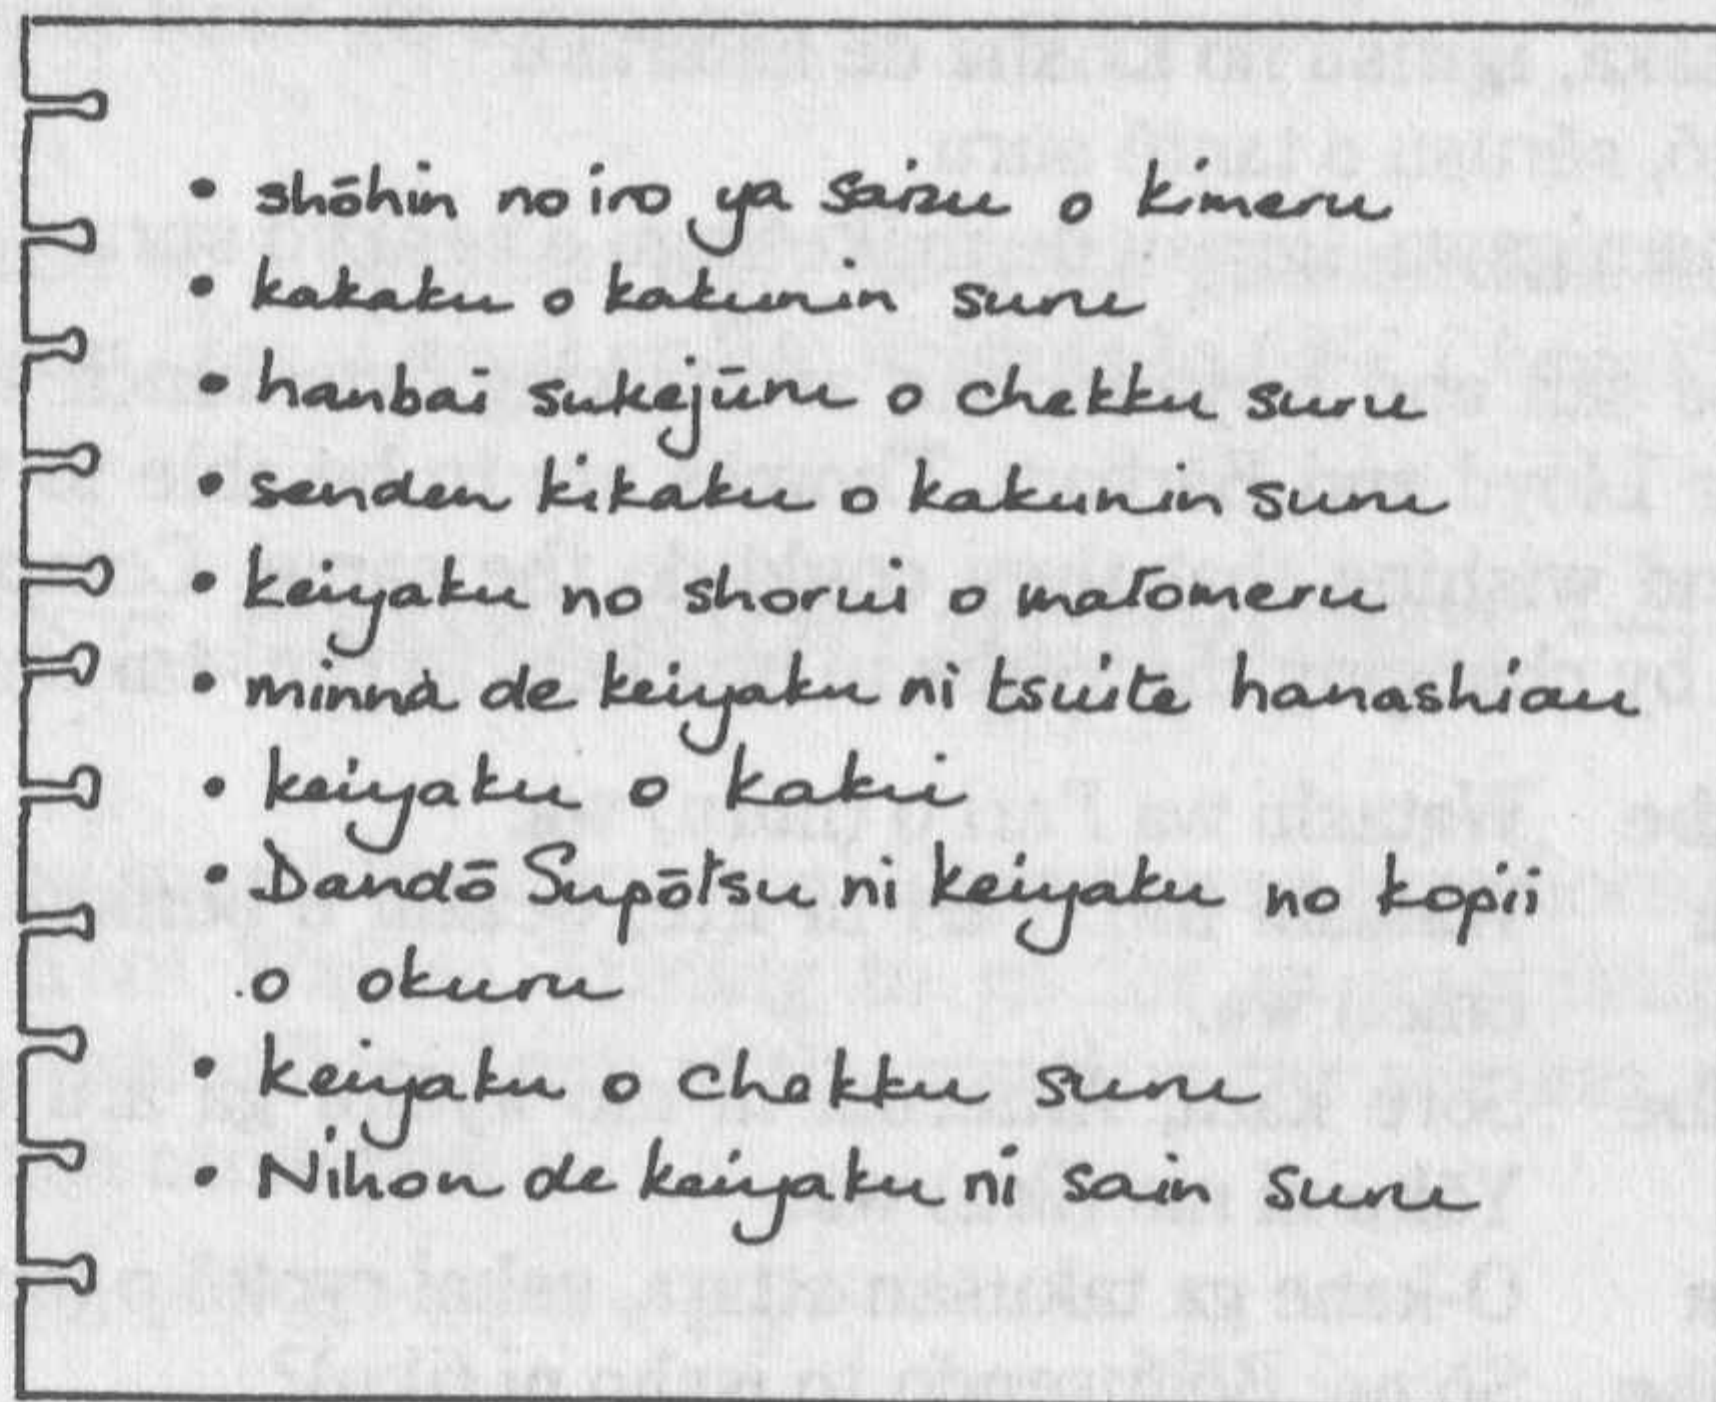 • shōhin no iro ya saizu o kimeru
• kakaku o kakunin suru
• hanbai sukejūru o chekku suru
• senden kikaku o kakunin suru
• keiyaku no shorui o matomeru
• minna de keiyaku ni tsuite hanashiau
• keiyaku o kaku
• Dandō Supōtsu ni keiyaku no kopii
o okuru
• keiyaku o chekku suru
• Nihon de keiyaku ni sain suru